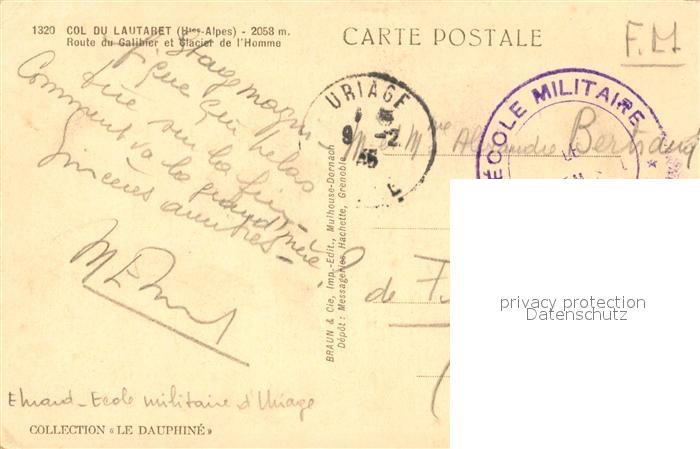 1320 COL DU LAUTARET (Htes-Alpes) - 2058 m.
Route du Galibier et Glacier de l'Homme
CARTE POSTALE
F.M
Stage magni-
fique qui hélas
tire sur la fin -
Comment va la grand'mère?
Sincères amitiés -
URIAGE
9 -2
45
ÉCOLE MILITAIRE
LE
M. et Mme Alexandre Bertrand
de
BRAUN & Cie, Imp.-Edit., Mulhouse-Dornach
Dépôt: Messageries Hachette, Grenoble
privacy protection
Datenschutz
Ecole militaire d'Uriage
COLLECTION « LE DAUPHINÉ »